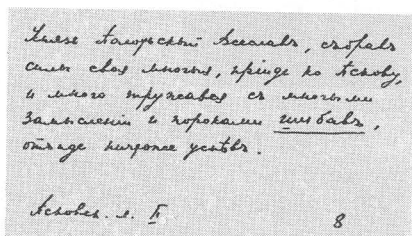 Князь Полочьскый Всеславъ, събравъ
силы своя многыя, прiиде ко Пскову,
и много тружався съ многыми
замысленiи и пороками шибавъ,
отъиде ничтоже успѣвъ.
Псковск. л. II
8